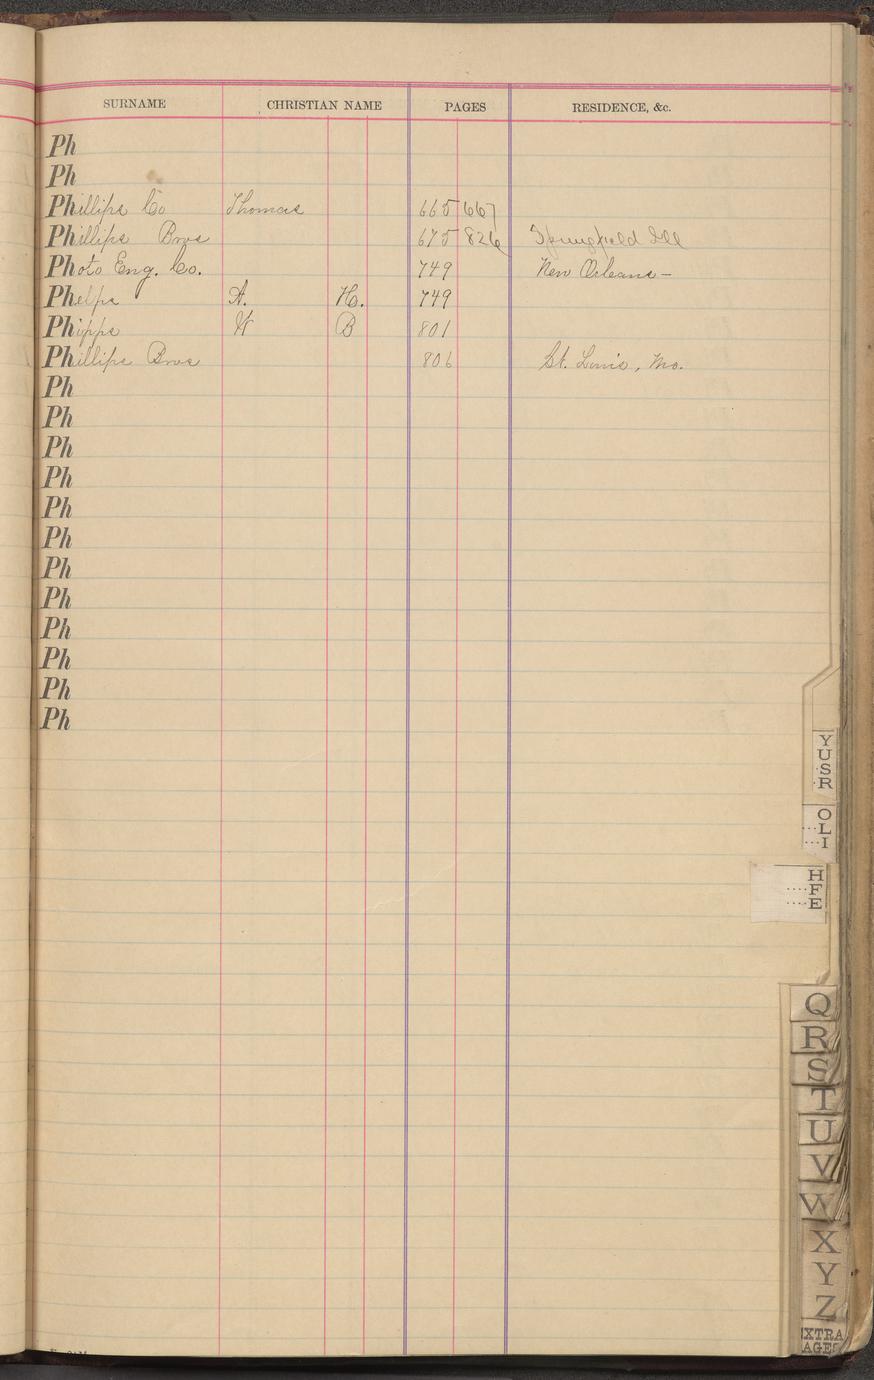 SURNAME CHRISTIAN NAME PAGES RESIDENCE, &c.
Ph
Ph
Phillips Co Thomas 665 667
Phillips Bros 675 826 Springfield Ill
Photo Eng. Co. 749 New Orleans—
Phelps A. H. 749
Phipps W B 801
Phillips Bros 806 St. Louis, Mo.
Ph
Ph
Ph
Ph
Ph
Ph
Ph
Ph
Ph
Ph
Ph
Ph
Y
U
S
R
O
L
I
H
F
E
Q
R
S
T
U
V
W
X
Y
Z
EXTRA